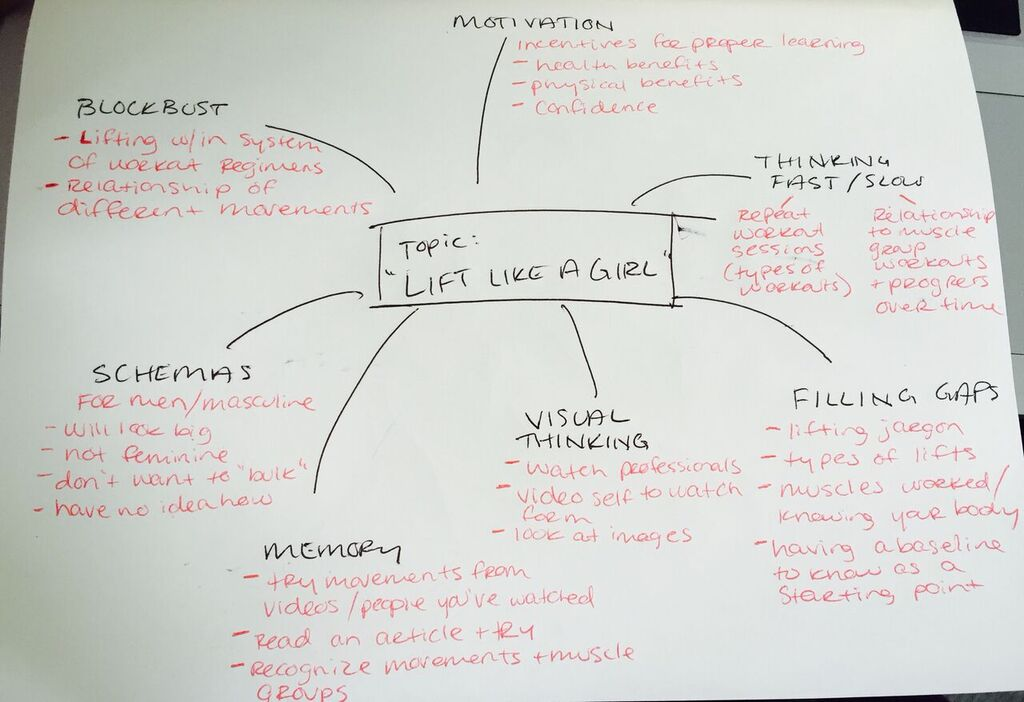 MOTIVATION
Incentives for proper learning
- health benefits
- physical benefits
- confidence
BLOCKBUST
- Lifting w/in system
of workout regimens
- Relationship of
different movements
THINKING
FAST/SLOW
Repeat
workout
sessions
(types of
workouts)
Relationship
to muscle
group
workouts
+ progress
over time
TOPIC:
"LIFT LIKE A GIRL"
SCHEMAS
FOR men/masculine
- will look big
- not feminine
- don't want to "bulk"
- have no idea how
VISUAL
THINKING
- watch professionals
- video self to watch
form
- look at images
FILLING GAPS
- lifting jargon
- types of lifts
- muscles worked/
knowing your body
- having a baseline
to know as a
starting point
MEMORY
- try movements from
videos/people you've watched
- Read an article + try
- Recognize movements + muscle
GROUPS